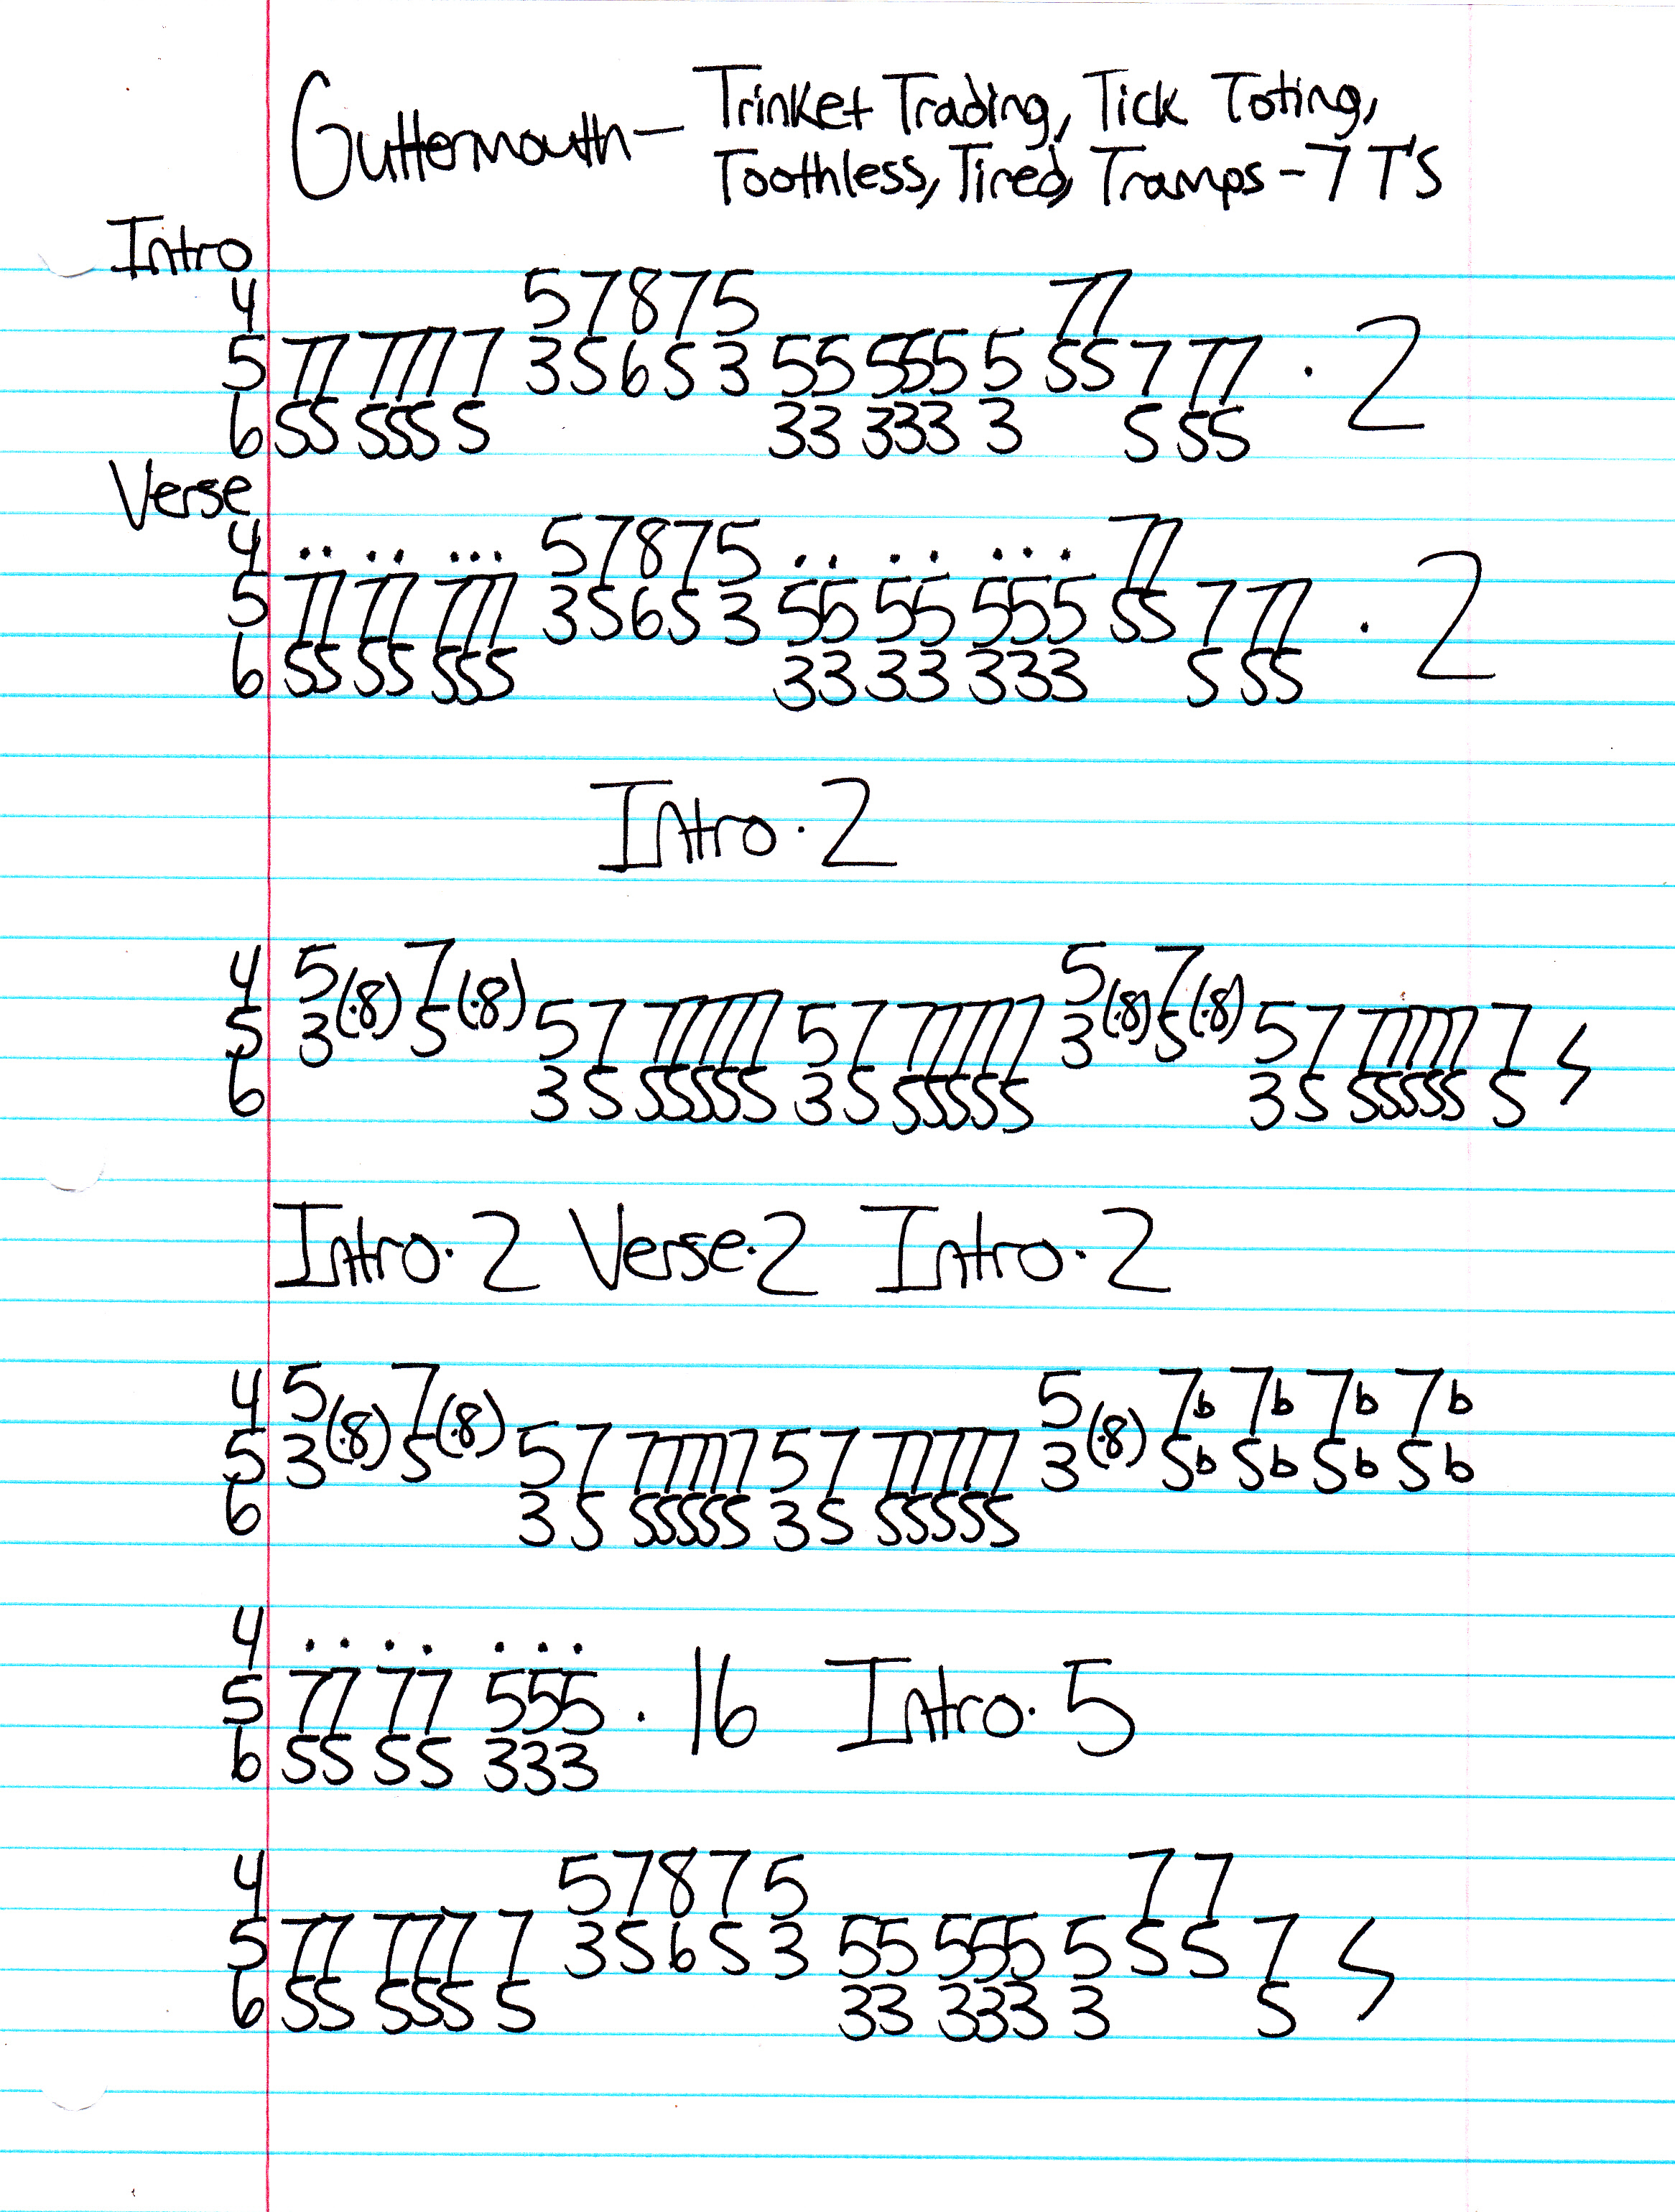 Guttermouth - Trinket Trading, Tick Toting,
Toothless, Tired, Tramps - 7 T'S
Intro
4 5 7 8 7 5 77
5 77 777 7 3 5 6 5 3 55 555 5 55 7 77 · 2
6 55 555 5 33 333 3 5 55
Verse
4 .. .. ... 5 7 8 7 5 .. .. ... 77
5 77 77 777 3 5 6 5 3 55 55 555 55 7 77 · 2
6 55 55 555 33 33 333 5 55
Intro · 2
4 5 (·8) 7 (·8) 5 (·8) 7 (·8)
5 3 5 5 7 77777 5 7 77777 3 5 5 7 77777 7
6 3 5 55555 3 5 55555 3 5 55555 5
Intro · 2 Verse · 2 Intro · 2
4 5 (·8) 7 (·8) 5 (·8) 7b 7b 7b 7b
5 3 5 5 7 77777 5 7 77777 3 5b 5b 5b 5b
6 3 5 55555 3 5 55555
4 .. .. ...
5 77 77 555 · 16 Intro · 5
6 55 55 333
4 5 7 8 7 5 7 7
5 77 777 7 3 5 6 5 3 55 555 5 5 5 7
6 55 555 5 33 333 3 5